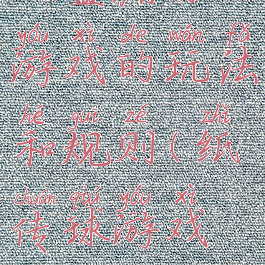 yóu xì de wán fǎ
游戏的玩法
hé guī zé zhǐ
和规则(纸
chuán qiú yóu xì
传球游戏